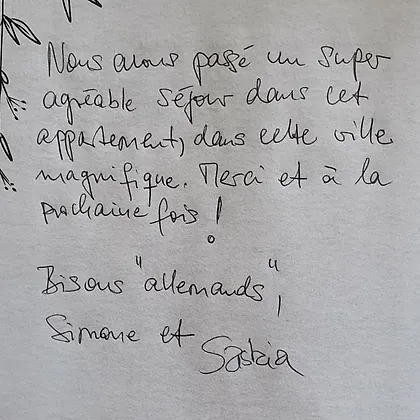 Nous avons passé un super
agréable séjour dans cet
appartement, dans cette ville
magnifique. Merci et à la
prochaine fois !
Bisous "allemands",
Simone et
Saskia